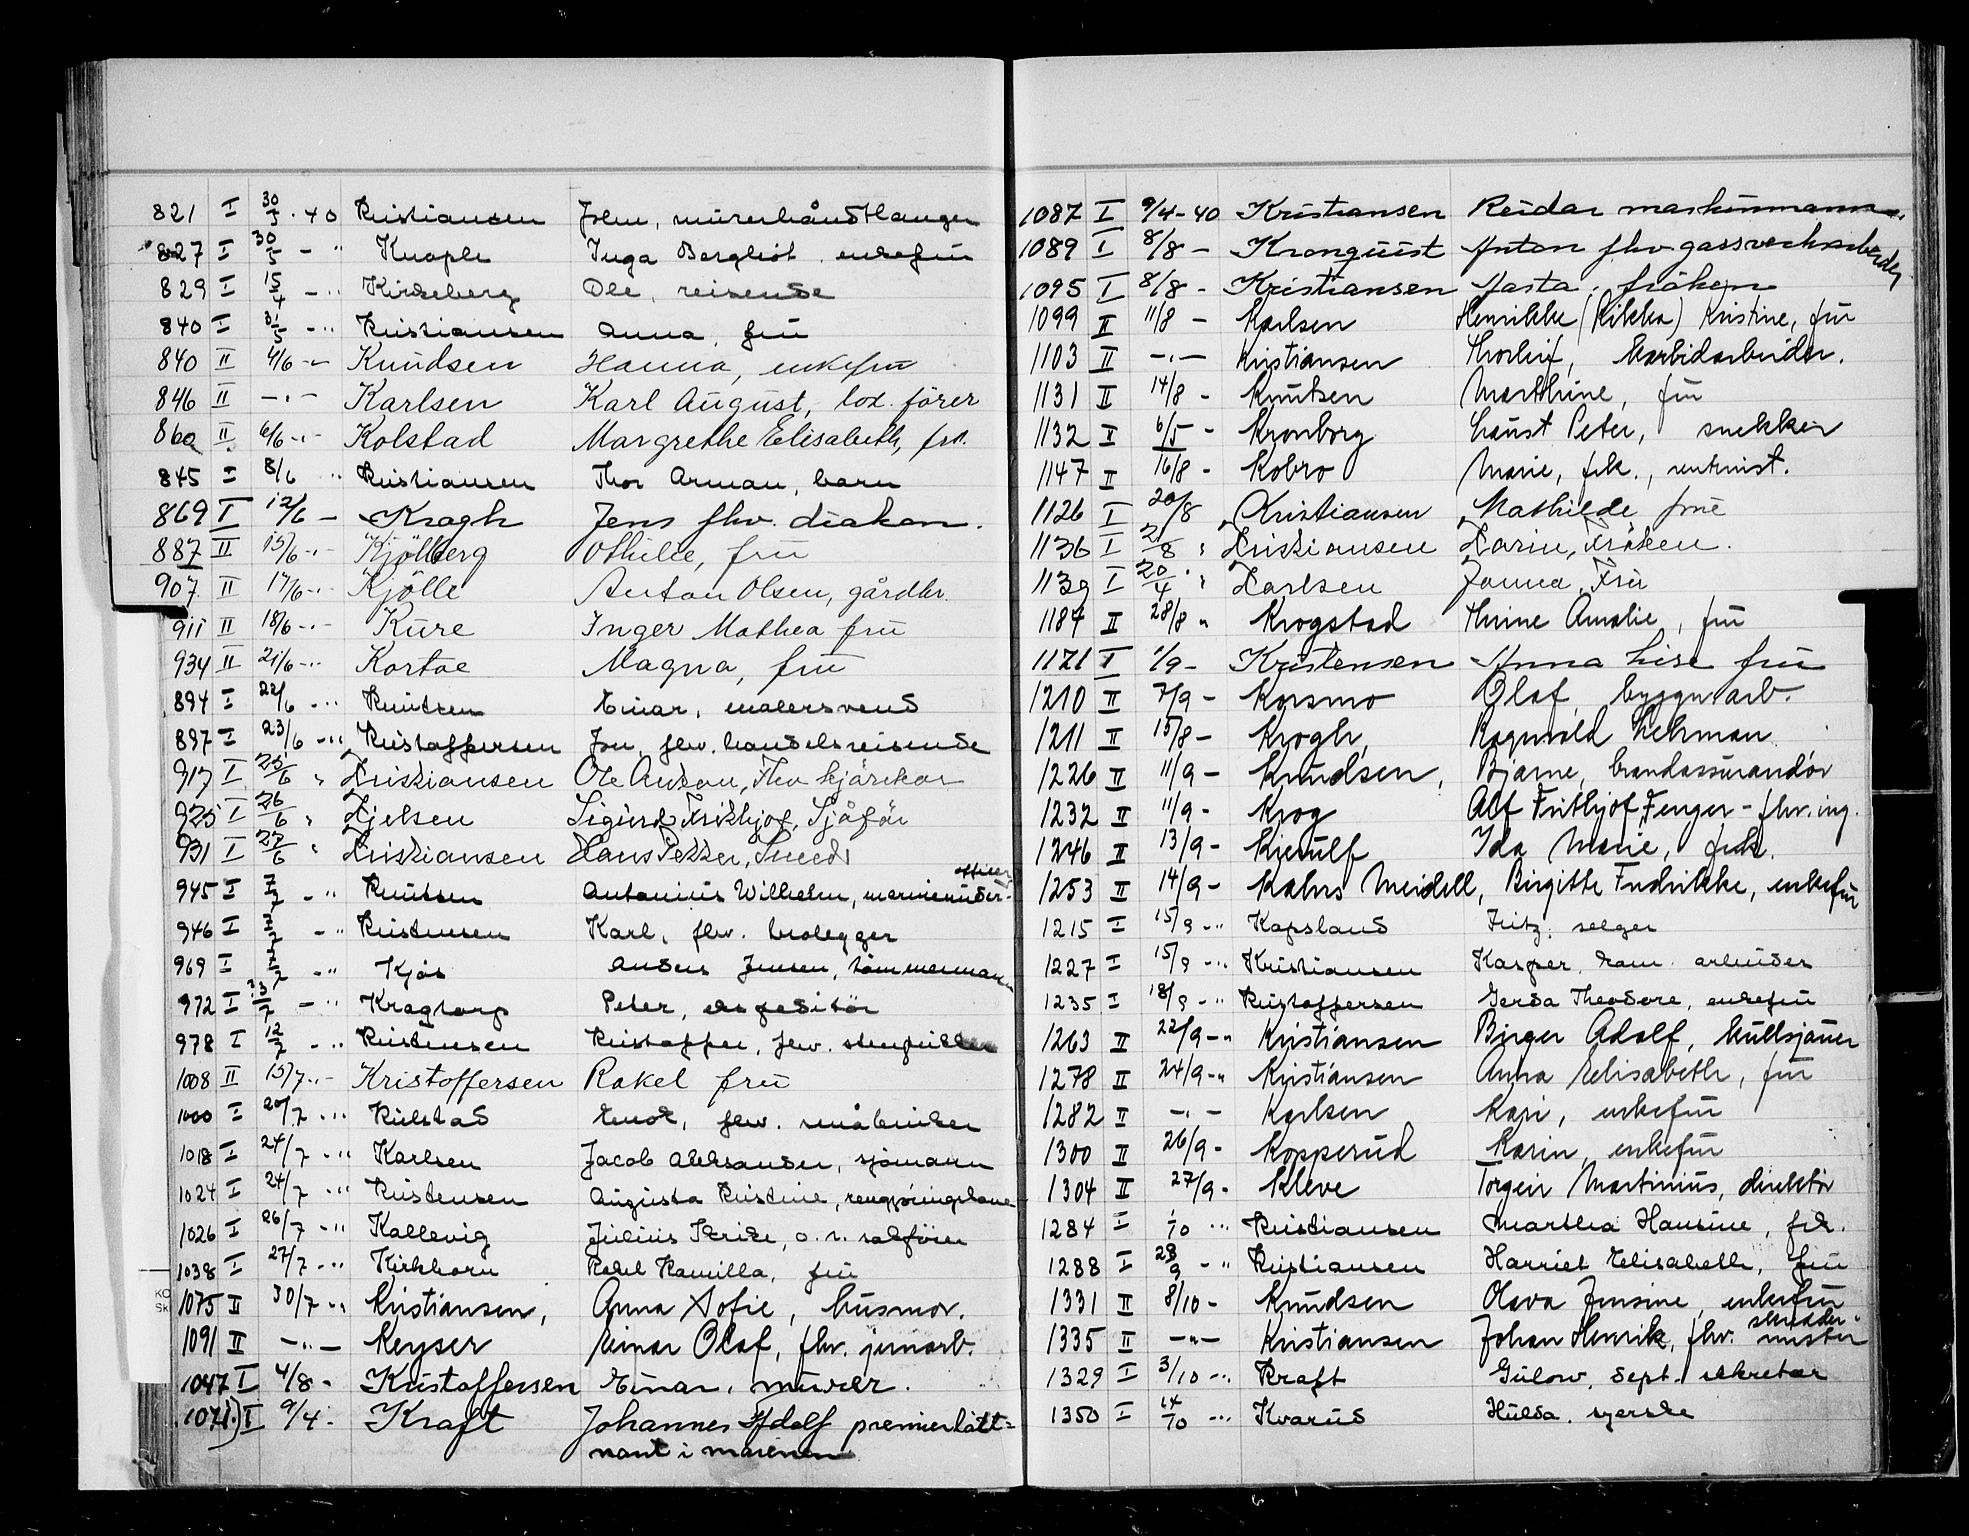 821 I 30/5 · 40 Kristiansen John, murerhåndtlanger
827 I 30/5 - " Knoph Inga Bergliot, enkefru
829 I 15/4 - " Kirkeberg Ole, reisende
840 I 31/5 - " Kristiansen Anna, fru
840 II 4/6 - " - Knudsen Hanna, enkefru
846 II - " - Karlsen Karl August, lok. förer
860 II 6/6 - " - Kolstad Margrethe Elisabeth, frk.
845 I 8/6 " Kristiansen Thor Arman, barn
869 I 12/6 - Kragh Jens fhv. diakon.
887 II 15/6 - " - Kjölberg Othilie, fru
907 II 17/6 - " - Kjölle Anton Olsen, gårdbr.
911 II 18/6 - " - Kure Inger Mathea fru
934 II 21/6 - " Kortoe Magna, fru
894 I 22/6 - " Knutsen Einar, malersvend
897 I 23/6 - " Kristoffersen Jon, fhv. handelsreisende
917 I 25/6 " Kristiansen Ole Anton, Fhv kjörekar
925 I 26/6 " Kjelsen Sigurd Frithjof, Sjåför
931 I 27/6 " Kristiansen Hans Petter, Smed
945 I 7/7 - " Knutsen Antonius Wilhelm, marineunder-officer
946 I 7/7 - " Kristensen Karl, fhv. brolegger
969 I /7 - " Kjös Anders Jensen, tömmermann
972 I 13/7 - " Kragtorp Peter, ekspeditör
978 I 12/7 - " Kristensen Kristoffer, fhv.
1008 II 15/7 - " - Kristoffersen Rakel fru
1000 I 20/7 - " Kulstad Enok, fhv. småbruker
1018 I 24/7 - " Karlsen Jacob Aleksander, sjömann
1024 I 24/7 - " Kristensen Augusta Kristine, rengjöringskone
1026 I 26/7 - " Kallevig Julius Terike, o.r. sakförer
1038 I 27/7 - " Kirkhorn Rakel Kamilla, fru
1075 II 30/7 - " Kristiansen, Anna Sofie, husmor.
1091 II - " - Keyser Einar Olaf, fhv. jernarb.
1047 I 4/8 - Kristoffersen Einar, murer.
1071.) I 9/4 - Kraft Johannes Adolf premierlöit=
nant i marinen
1087 I 9/4 - 40 Kristiansen Reidar maskinmann.
1089 I 8/8 - Kronquist Anton fhv gassverksarbeider
1095 I 8/8 - Kristiansen Asta. fröken
1099 II 11/8 - Karlsen Henrikke (Rikka) Kristine, fru
1103 II - " - Kristiansen Thorleif, karbidarbeider.
1131 II 14/8 - Knutsen Marthine, fru
1132 I 6/5 - Kronborg Ernst Peter, snekker
1147 II 16/8 - Kobro Marie, frk., rentenist.
1126 I 20/8 Kristiansen Mathilde frue
1136 I 2/8 " Kristiansen Karin, Fröken.
1139 I 20/4 " Karlsen Jonna, Fru
1184 II 28/8 " Krogstad Thrine Amalie, fru
1171 I 1/9 - Kristensen Anna Lise fru
1210 II 7/9 - Korsmo Olaf, byggn. arb.
1211 II 15/8 - Krogh, Ragnvald Lehrman
1226 II 11/9 - Knudsen, Bjarne, brandassurandör
1232 II 11/9 - Krog Alf Frithjof Fenger - fhv. ing.
1246 II 13/9 - Kjerulf Ida Marie, frk.
1253 II 14/9 - Kahrs Meidell, Birgitte Fredrikke, enkefru
1215 I 15/9 - " Kapsland Fritz. selger
1227 I 15/9 - " Kristiansen Kasper. kom. arbeider
1235 I 18/9 - " Kristoffersen Gerda Theodore, enkefru
1263 II 22/9 - " Kristiansen Birger Adolf, kullsjauer
1278 II 24/9 - " Kristiansen Anna Elisabeth, fru
1282 II - " - Karlsen Kari, enkefru
1300 II 26/9 - Kopperud Karin, enkefru
1304 II 27/9 - Kleve Torgeir Martinius, direktör
1284 I 1/10 " Kristiansen Martha Hansine, frk.
1288 I 28/9 - " Kristiansen Harriet Elisabeth, fru
1331 II 8/10 - Knudsen Olava Jensine, enkefru
1335 II - " - Kristiansen Johan Henrik, fhv. skredder-mester
1329 I 3/10 - " Kraft Gulow, dept. sekretær
1350 I 14/10 - " Kvarud Hulda. syerske